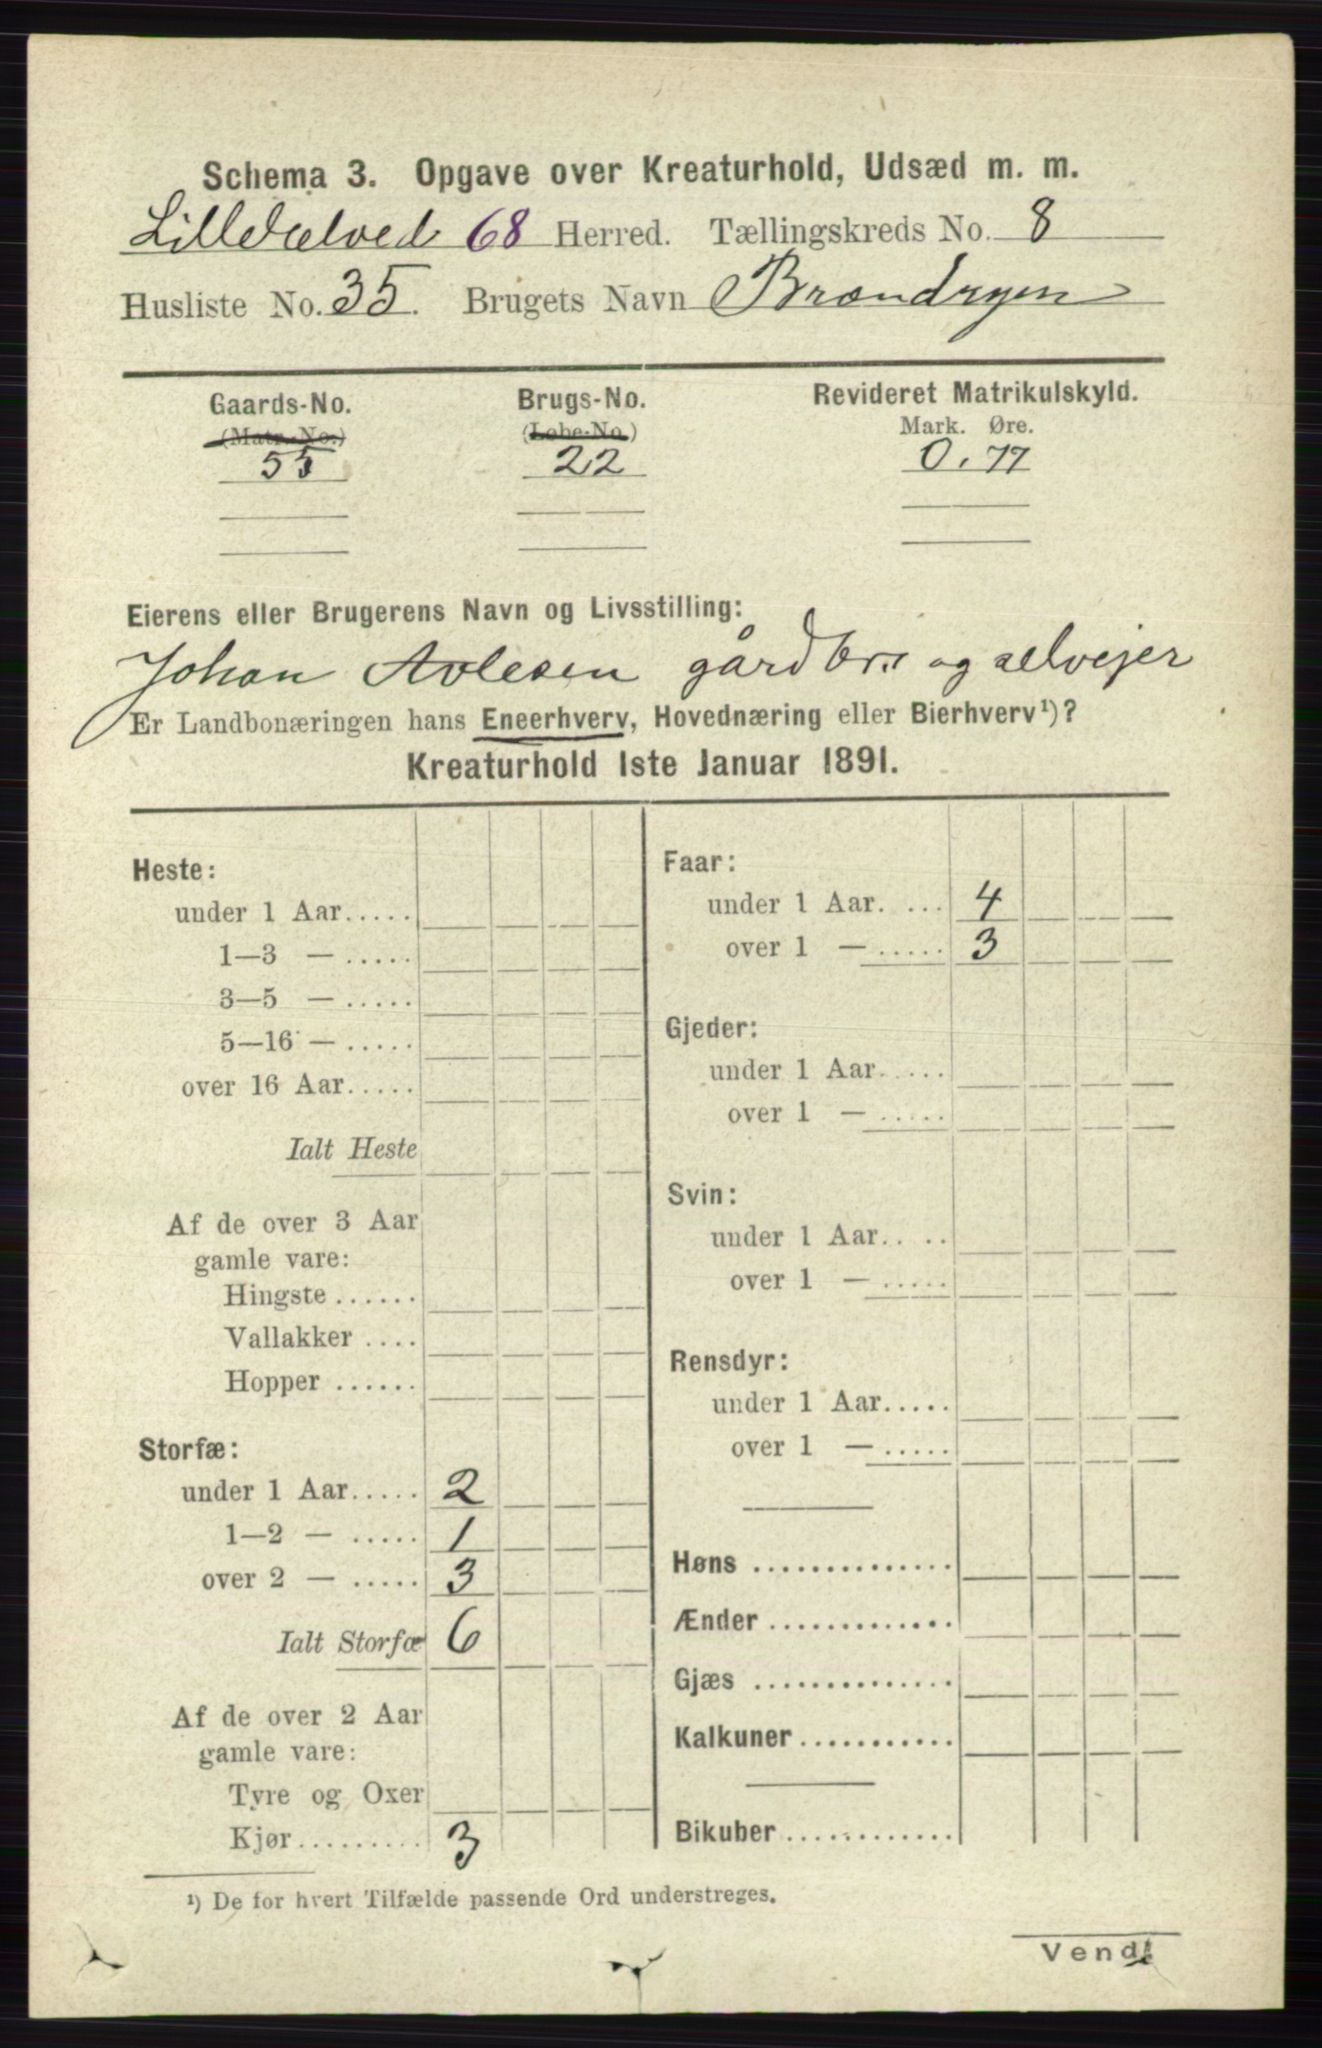 Schema 3. Opgave over Kreaturhold, Udsæd m. m.
Lilleelved 68 Herred. Tællingskreds No. 8
Husliste No. 35. Brugets Navn Brændryen
Gaards-No. Brugs-No. Revideret Matrikulskyld.
(Matr.-No.) (Løbe-No.) Mark. Øre.
55 22 0.77
Eierens eller Brugerens Navn og Livsstilling:
Johan Avlesen gårdbr. og selvejer
Er Landbonæringen hans Eneerhverv, Hovednæring eller Bierhverv¹)?
Kreaturhold 1ste Januar 1891.
Heste:
under 1 Aar.....
1—3 — .....
3—5 — .....
5—16 — .....
over 16 Aar.....
Ialt Heste
Af de over 3 Aar
gamle vare:
Hingste ......
Vallakker ....
Hopper ......
Storfæ:
under 1 Aar..... 2
1—2 — ..... 1
over 2 — ..... 3
Ialt Storfæ 6
Af de over 2 Aar
gamle vare:
Tyre og Oxer
Kjør......... 3
Faar:
under 1 Aar. ... 4
over 1 — ..... 3
Gjeder:
under 1 Aar.....
over 1 — .....
Svin:
under 1 Aar.. ..
over 1 — .....
Rensdyr:
under 1 Aar.....
over 1 — .....
Høns ..............
Ænder .............
Gjæs ..............
Kalkuner ...........
Bikuber .............
¹) De for hvert Tilfælde passende Ord understreges.
Vend!